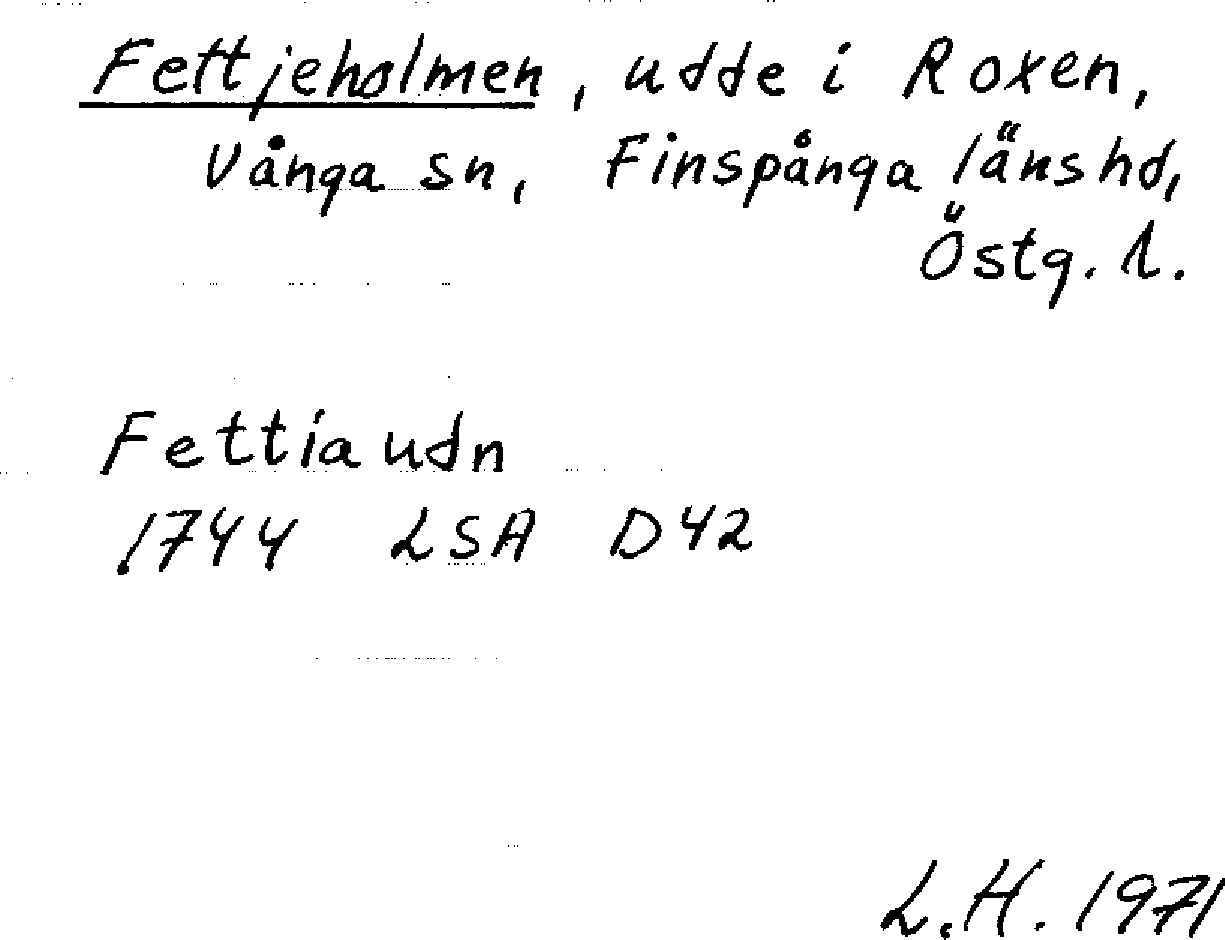 Fettjeholmen, udde i Roxen,
Vånga sn, Finspånga länshd,
Östg. l.
Fettia udn
1744 LSA D42
L.H. 1971